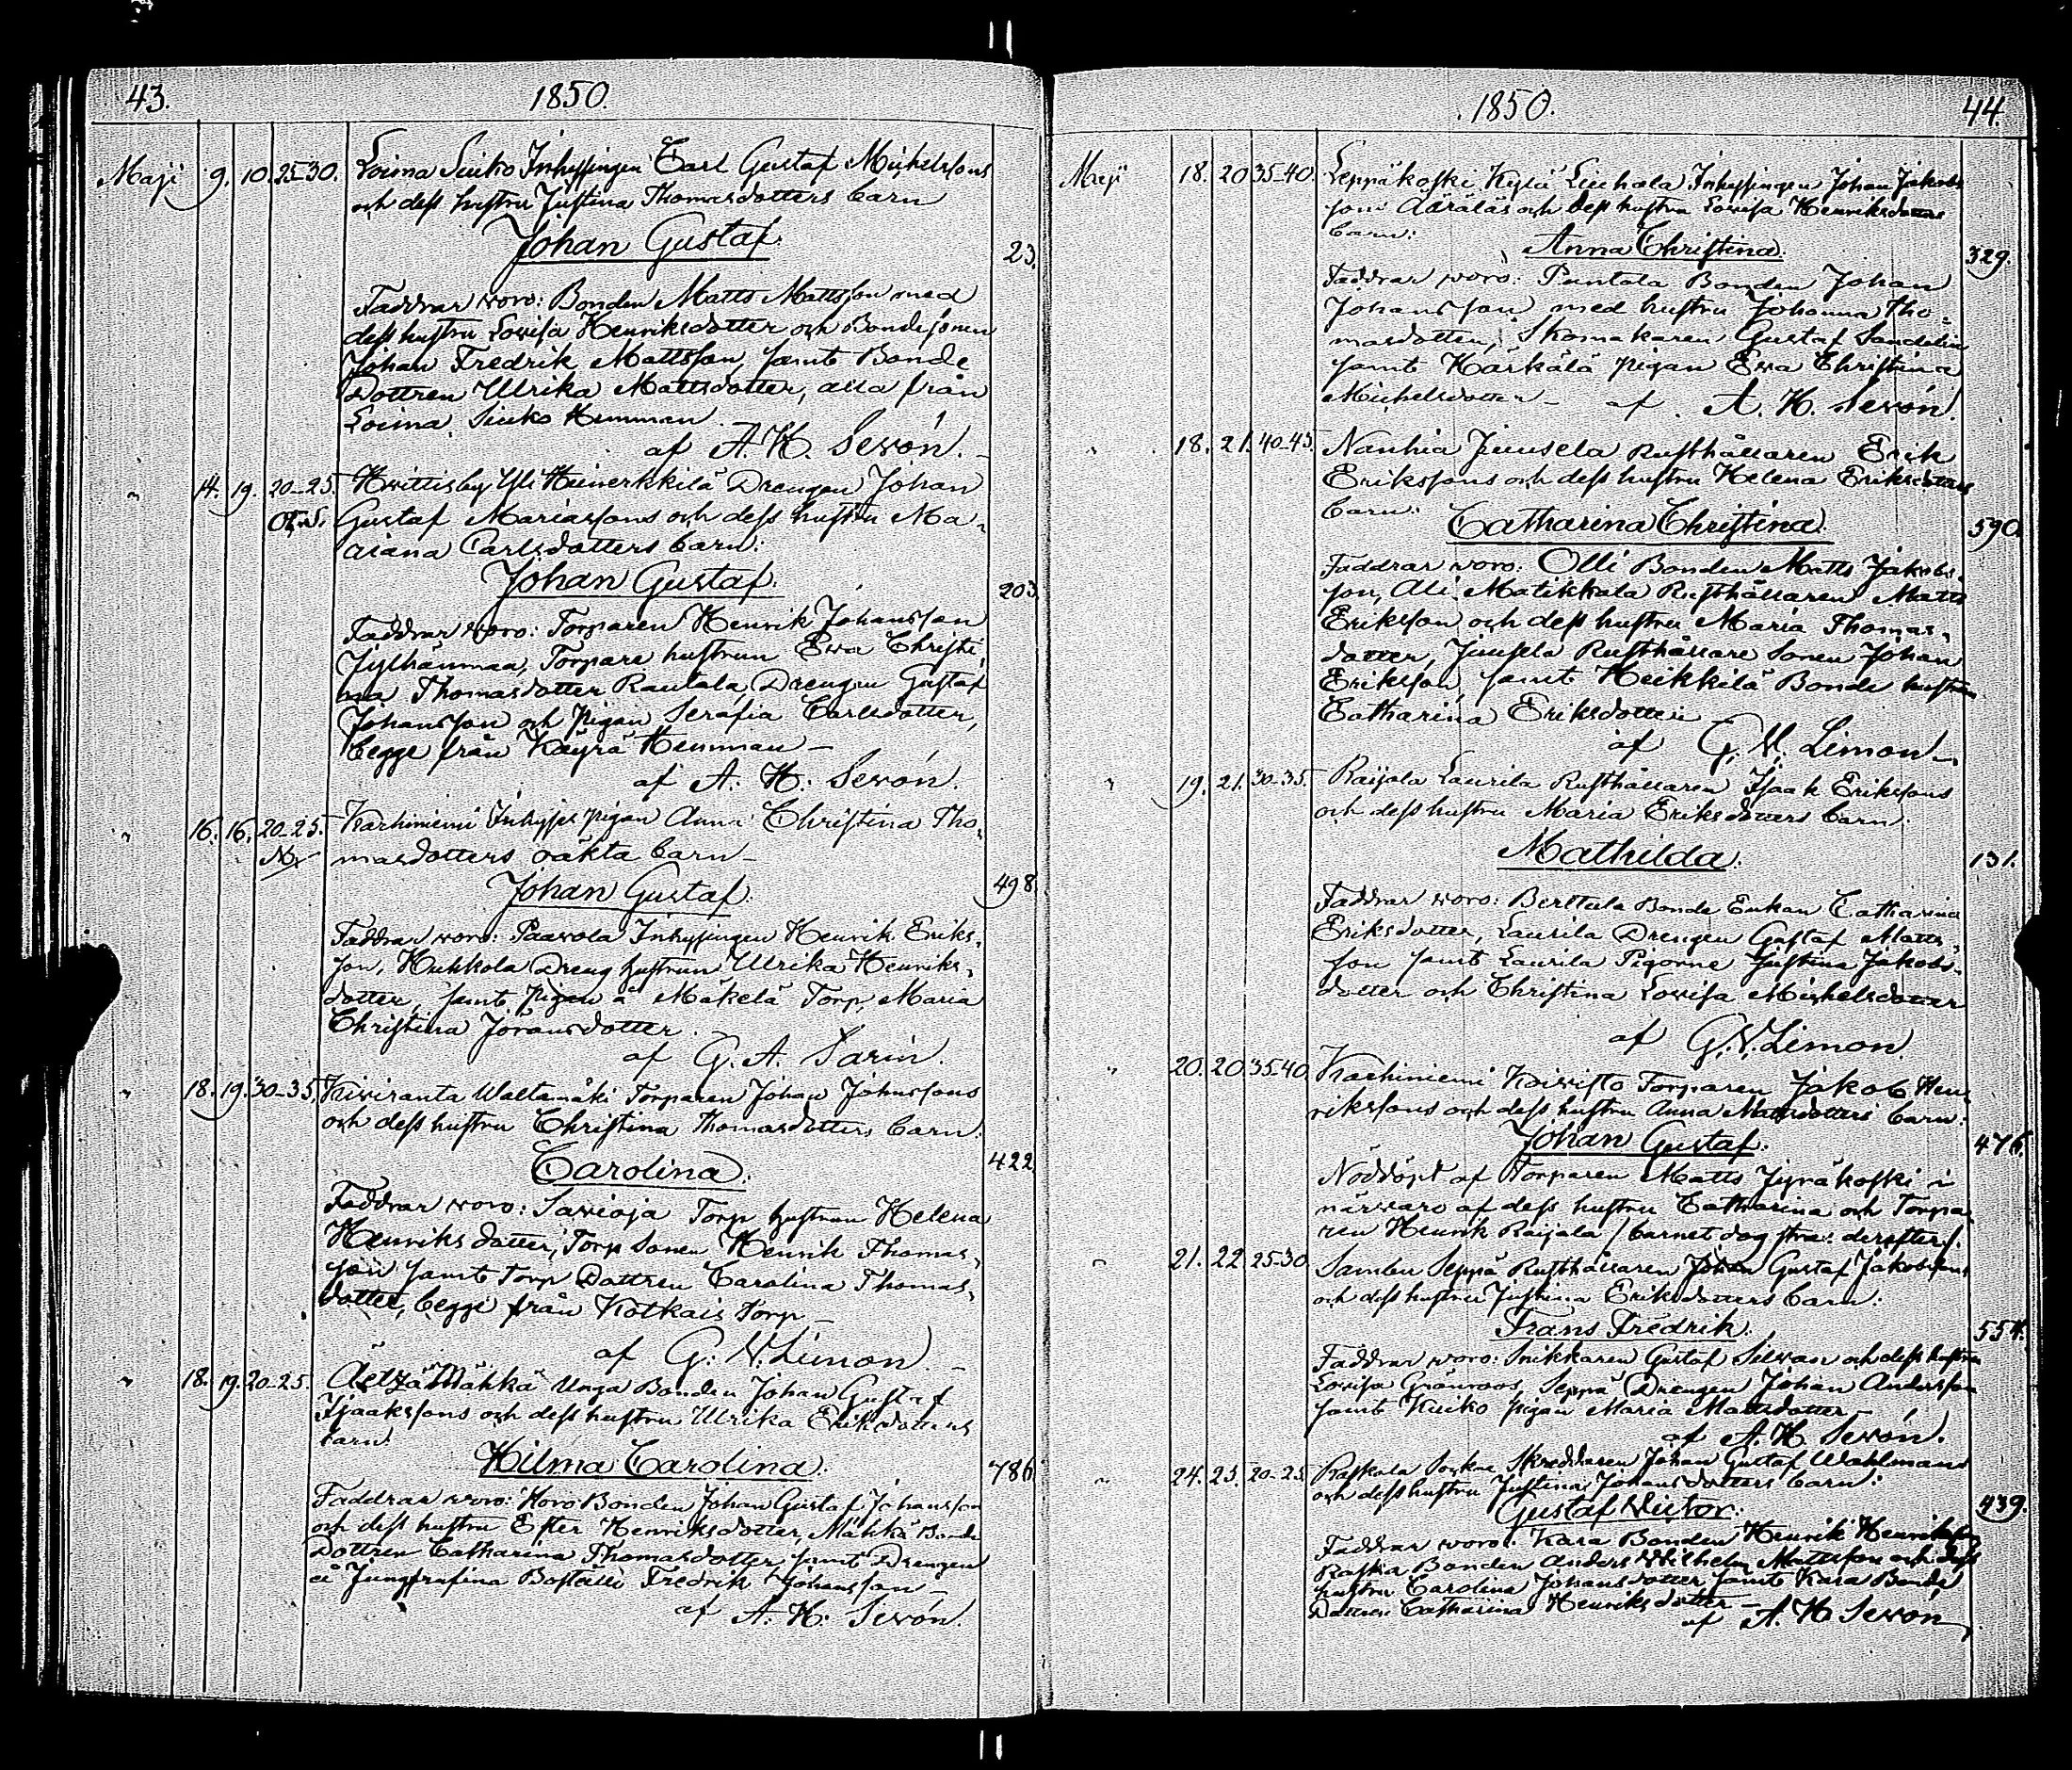 43.
1850.
Maji 9. 10. 25-30. Loima Siuko Inhysingen Carl Gustaf Michelsons
och dess hustru Justina Thomasdotters barn
Johan Gustaf. 23.
Faddrar woro: Bonden Matts Mattsson med
dess hustru Lovisa Henriksdotter och Bondesonen
Johan Fredrik Mattsson, samt Bonde
Dottren Ulrika Mattsdotter, alla från
Loima Siuko Hemman.
af A. H. Sevón.
" 14. 19. 20-25. Hvittisby Yli Heinerkkilä Drengen Johan
Gustaf Mariassons och dess hustru Ma-
riana Carlsdotters barn:
Johan Gustaf. 203.
Faddrar woro: Torparen Henrik Johansson
Jylhänmaa, Torpare hustrun Ewa Christi-
na Thomasdotter Rautala, Drengen Gustaf
Johansson och pigan Serafia Carlsdotter,
begge från Käyrä Hemman
af A. H. Sevón.
" 16. 16. 20-25. Karhiniemi Inhyses pigan Anna Christina Tho-
masdotters oäkta barn
Johan Gustaf. 498.
Faddrar woro: Paavola Inhysingen Henrik Eriks-
son, Hukkola Dreng hustrun Ulrika Henriks-
dotter, samt pigan å Mäkelä Torp, Maria
Christina Göransdotter.
af G. A. Sarin.
" 18. 19. 30-35. Kiviranta Waltamäki Torparen Johan Johanssons
och dess hustru Christina Thomasdotters barn.
Carolina. 422
Faddrar woro: Savioja Torp hustrun Helena
Henriksdotter, Torp Sonen Henrik Thomas-
son samt Torp Dottren Carolina Thomas-
dotter, begge från Kotkais Torp
af G. V. Limon.
" 18. 19. 20-25. Äetsä Mähkä Unga Bonden Johan Gustaf
Isaakssons och dess hustru Ulrika Eriksdotters
barn:
Hilma Carolina. 786.
Faddrar woro: Horo Bonden Johan Gustaf Johansson
och dess hustru Ester Henriksdotter, Mähkä Bonde
Dottren Catharina Thomasdotter, samt Drengen
å Jungfrulina Boställe Fredrik Johansson
af A. H. Sevón.
1850.
44.
Maji 18. 20 35-40. Leppäkoski Kylä Liuhala Inhysingen Johan Jakobs
sons och dess hustru Lovisa Henriksdotters
barn:
Anna Christina. 329.
Faddrar woro: Puntala Bonden Johan
Johansson med hustru Johanna Tho-
masdotter, Skomakaren Gustaf Sandelin
samt Kärkälä pigan Ewa Christina
Michelsdotter af A. H. Sevón.
" 18. 21. 40-45. Nanhia Juusela Rusthållaren Erik
Erikssons och dess hustru Helena Eriksdotters
barn:
Catharina Christina. 590.
Faddrar woro: Olli Bonden Matts Jakobs-
son, Ali Matikkala Rusthållaren Matts
Eriksson och dess hustru Maria Thomas-
dotter, Juusela Rusthållare Sonen Johan
Eriksson, samt Heikkilä Bonde hustrun
Catharina Eriksdotter
af G. V. Limon
" 19. 21. 30-35. Raijala Laurila Rusthållaren Isaak Erikssons
och dess hustru Maria Eriksdotters barn:
Mathilda. 131.
Faddrar woro: Berttula Bonde Enkan Catharina
Eriksdotter, Laurila Drengen Gustaf Matts-
son samt Laurila Pigorne Justina Jakobs-
dotter och Christina Lovisa Michelsdotter
af G. V. Limon.
" 20. 20 35-40. Karhiniemi Koivisto Torparen Jakob Hen-
rikssons och dess hustru Anna Mattsdotters barn:
Johan Gustaf. 476.
Nöddöpt af Torparen Matts Jyräkoski i
närvaro af dess hustru Catharina och Torpa-
ren Henrik Raijala /barnet dog strax derefter/.
" 21. 22 25-30. Sambu Seppä Rusthållaren Johan Gustaf Jakobssons
och dess hustru Justina Eriksdotters barn:
Frans Fredrik. 554.
Faddrar woro: Snikkaren Gustaf Selvan och dess hustru
Lovisa Grönroos, Seppä Drengen Johan Andersson
samt Kuiko pigan Maria Mattsdotter
af A. H. Sevón.
" 24. 25. 20-25. Raskala Skreddaren Johan Gustaf Wahlmans
och dess hustru Justina Johansdotters barn:
Gustaf Victor. 439.
Faddrar woro: Kara Bonden Henrik Henriksson
Raskala Bonden Anders Wilhelm Mattsson och dess
hustru Carolina Johansdotter, samt Kara Bonde
Dottren Catharina Henriksdotter
af A. H. Sevón